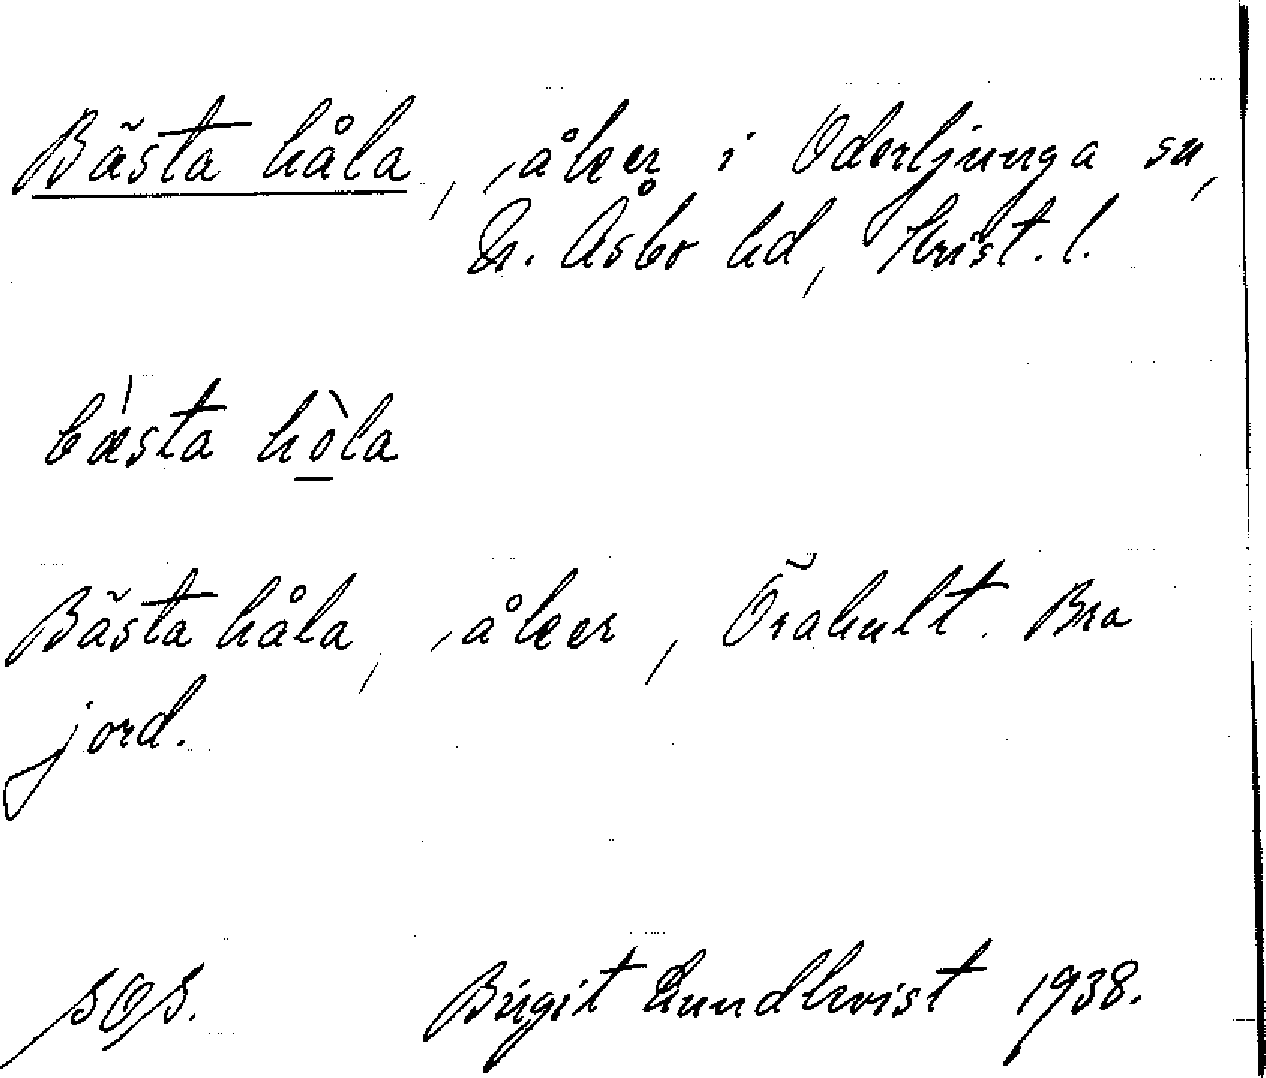 Bästa håla, åker i Oderljunga sn,
N. Åsbo hd, Krist. l.
bæsta hòla
Bästa håla, åker, Örahult. Bra
jord.
SOS. Birgit Lundkvist 1938.